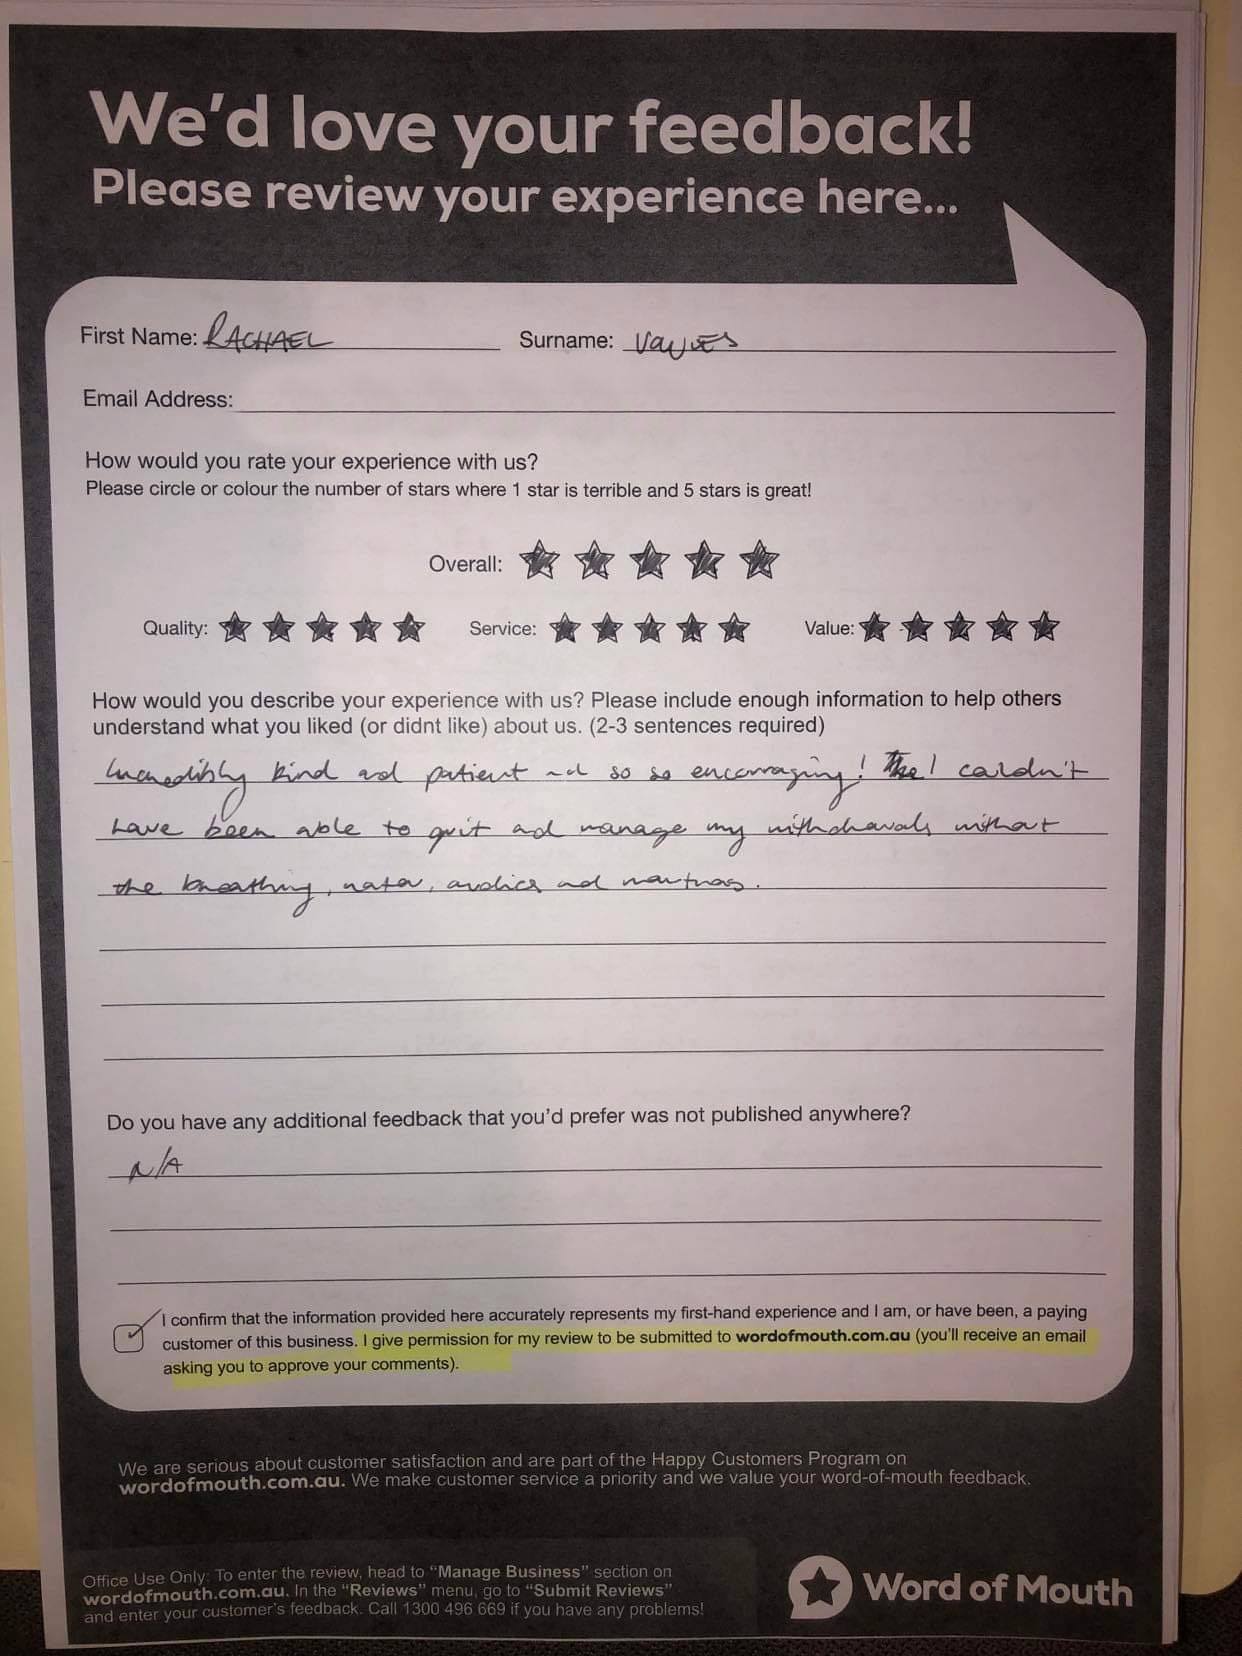 We'd love your feedback!
Please review your experience here...
First Name: RACHAEL Surname:
Email Address:
How would you rate your experience with us?
Please circle or colour the number of stars where 1 star is terrible and 5 stars is great!
Overall:
Quality: Service: Value:
How would you describe your experience with us? Please include enough information to help others
understand what you liked (or didnt like) about us. (2-3 sentences required)
Incredibly kind and patient and so so encouraging! The I couldn't
have been able to quit and manage my withdrawals without
the breathing, water, audios and mantras.
Do you have any additional feedback that you'd prefer was not published anywhere?
N/A
I confirm that the information provided here accurately represents my first-hand experience and I am, or have been, a paying
customer of this business. I give permission for my review to be submitted to wordofmouth.com.au (you'll receive an email
asking you to approve your comments).
We are serious about customer satisfaction and are part of the Happy Customers Program on
wordofmouth.com.au. We make customer service a priority and we value your word-of-mouth feedback.
Office Use Only: To enter the review, head to "Manage Business" section on
wordofmouth.com.au. In the "Reviews" menu, go to "Submit Reviews"
and enter your customer's feedback. Call 1300 496 669 if you have any problems!
Word of Mouth